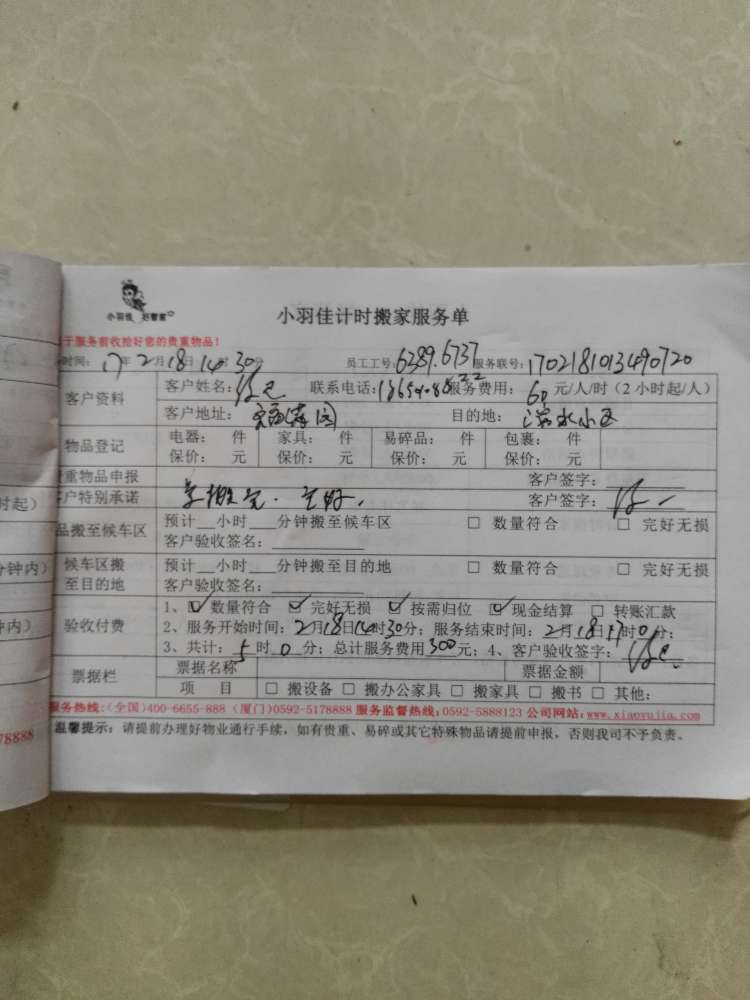 小羽佳 好管家
小羽佳计时搬家服务单
于服务前收拾好您的贵重物品!
时间: 17年 2月18日 14时30分 员工工号: 6389.6737 服务联号: 1702181013490720
客户资料
客户姓名: 联系电话: 服务费用: 60 元/人/时(2小时起/人)
客户地址: 目的地: 小区
物品登记
电器: 件 家具: 件 易碎品: 件 包裹: 件
保价: 元 保价: 元 保价: 元 保价: 元
贵重物品申报 客户签字:
客户特别承诺 客户签字:
品搬至候车区
预计__小时___分钟搬至候车区 □ 数量符合 □ 完好无损
客户验收签名:
候车区搬至目的地
预计__小时___分钟搬至目的地 □ 数量符合 □ 完好无损
客户验收签名:
验收付费
1、☑数量符合 ☑完好无损 ☑按需归位 ☑现金结算 □ 转账汇款
2、服务开始时间: 2月18日14时30分; 服务结束时间: 2月18日17时0分;
3、共计: 5时0分; 总计服务费用300元; 4、客户验收签字:
票据栏
票据名称 票据金额
项 目 □ 搬设备 □ 搬办公家具 □ 搬家具 □ 搬书 □ 其他:
服务热线:(全国)400-6655-888 (厦门)0592-5178888 服务监督热线:0592-5888123 公司网站:www.xiaoyujia.com
温馨提示: 请提前办理好物业通行手续, 如有贵重、易碎或其它特殊物品请提前申报, 否则我司不予负责。
时起)
分钟内)
中内)
78888